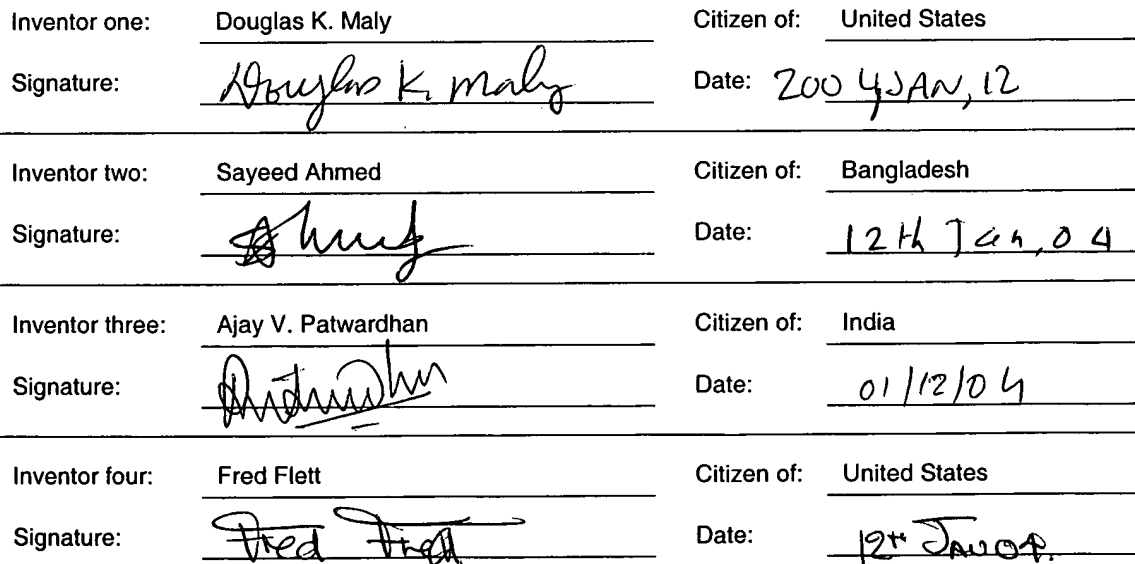 Inventor one: Douglas K. Maly Citizen of: United States
Signature: Douglas K. Maly Date: 2004 JAN, 12
Inventor two: Sayeed Ahmed Citizen of: Bangladesh
Signature: Date: 12th Jan, 04
Inventor three: Ajay V. Patwardhan Citizen of: India
Signature: Date: 01/12/04
Inventor four: Fred Flett Citizen of: United States
Signature: Fred Flett Date: 12th JAN 04.